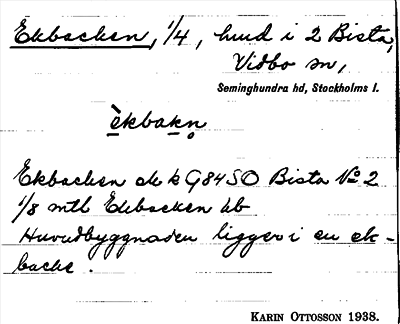 Ekbacken, 1/4, hmd i 2 Bista,
Vidbo sn,
Seminghundra hd, Stockholms l.
èkbakn̥
Ekbacken ek G84SO Bista No 2
1/8 mtl Ekebacken lb
Huvudbyggnaden ligger i en ek-
backe.
KARIN OTTOSSON 1938.